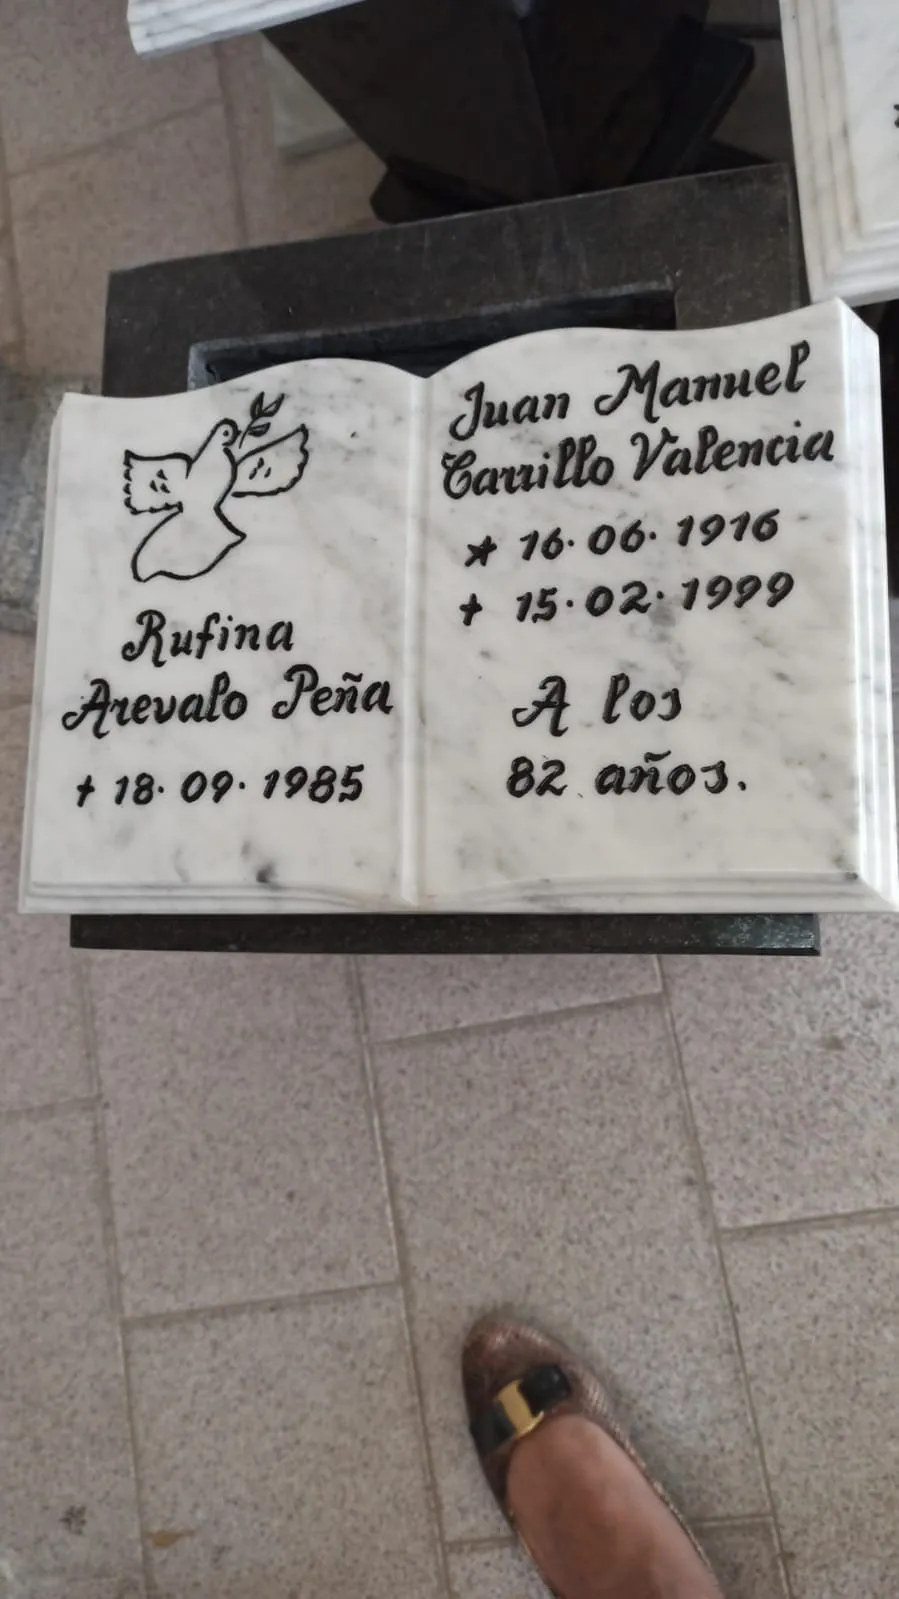 Rufina
Arevalo Peña
† 18. 09. 1985
Juan Manuel
Carrillo Valencia
★ 16. 06. 1916
† 15. 02. 1999
A los
82 años.